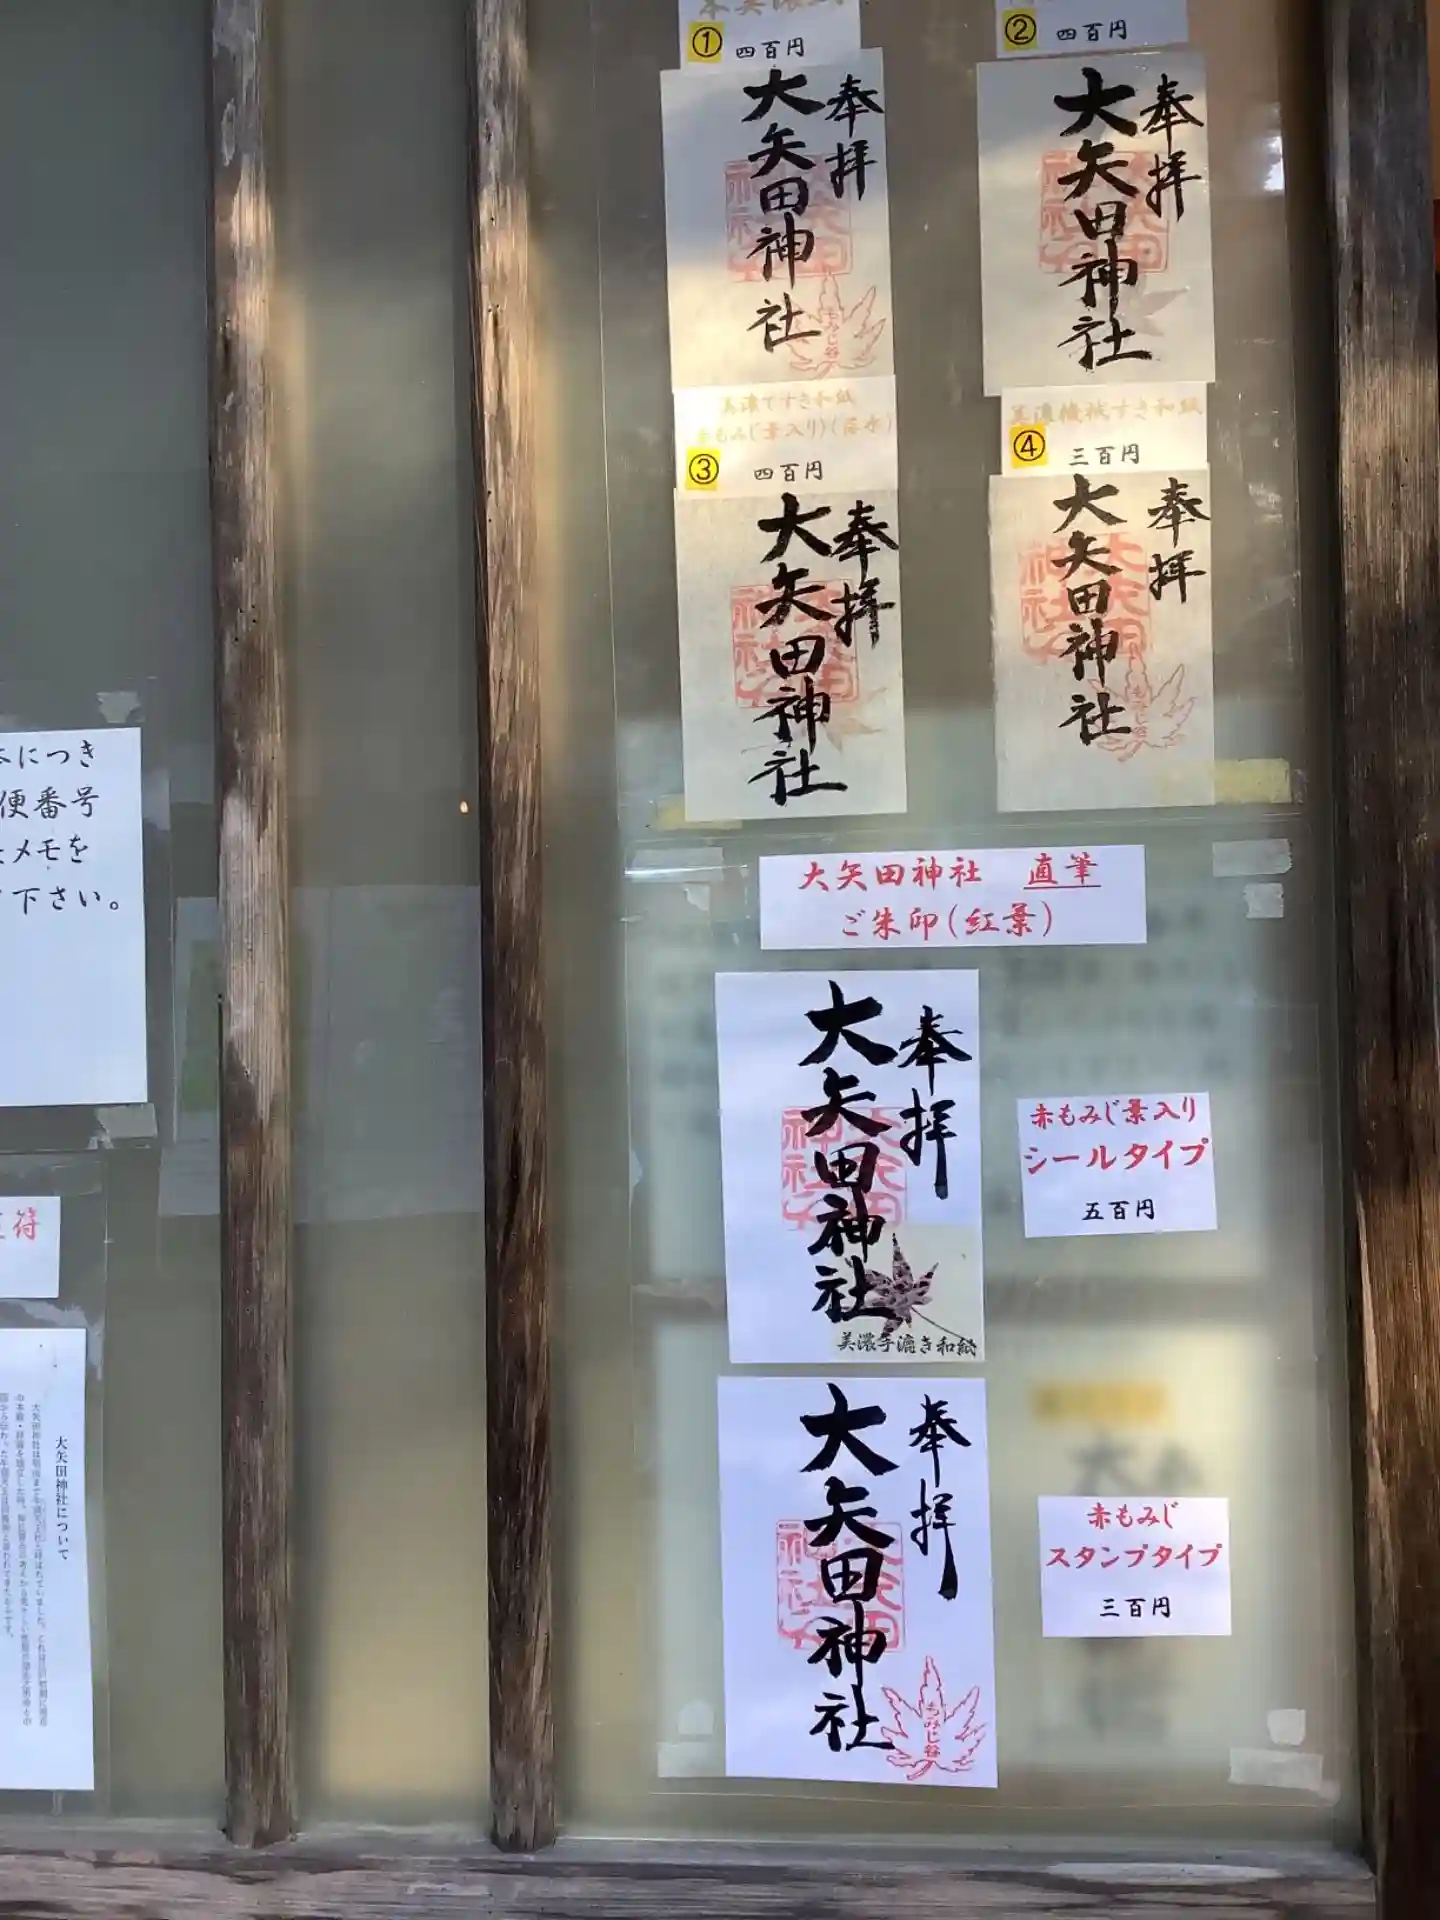 ①
四百円
奉拝
大矢田神社
もみじ谷
②
四百円
奉拝
大矢田神社
美濃てすき和紙
赤もみじ葉入り)(落水)
③
四百円
奉拝
大矢田神社
美濃機械すき和紙
④
三百円
奉拝
大矢田神社
もみじ谷
大矢田神社 直筆
ご朱印(紅葉)
奉拝
大矢田神社
美濃手漉き和紙
赤もみじ葉入り
シールタイプ
五百円
奉拝
大矢田神社
もみじ谷
赤もみじ
スタンプタイプ
三百円
につき
便番号
メモを
下さい。
符
大矢田神社について